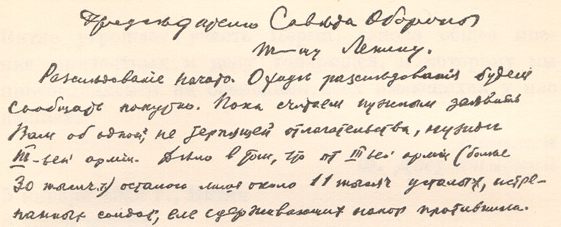 Председателю Совѣта Обороны
т-щу Ленину.
Разслѣдованіе начато. О ходѣ разслѣдованія будем
сообщать попутно. Пока считаем нужным заявить
Вам об одной, не терпящей отлагательства, нужде
III-ьей арміи. Дѣло в том, что от III-ьей арміи (более
30 тысяч ч.) осталось лишь около 11 тысяч усталых, истре-
панных солдат, еле сдерживающих напор противника.